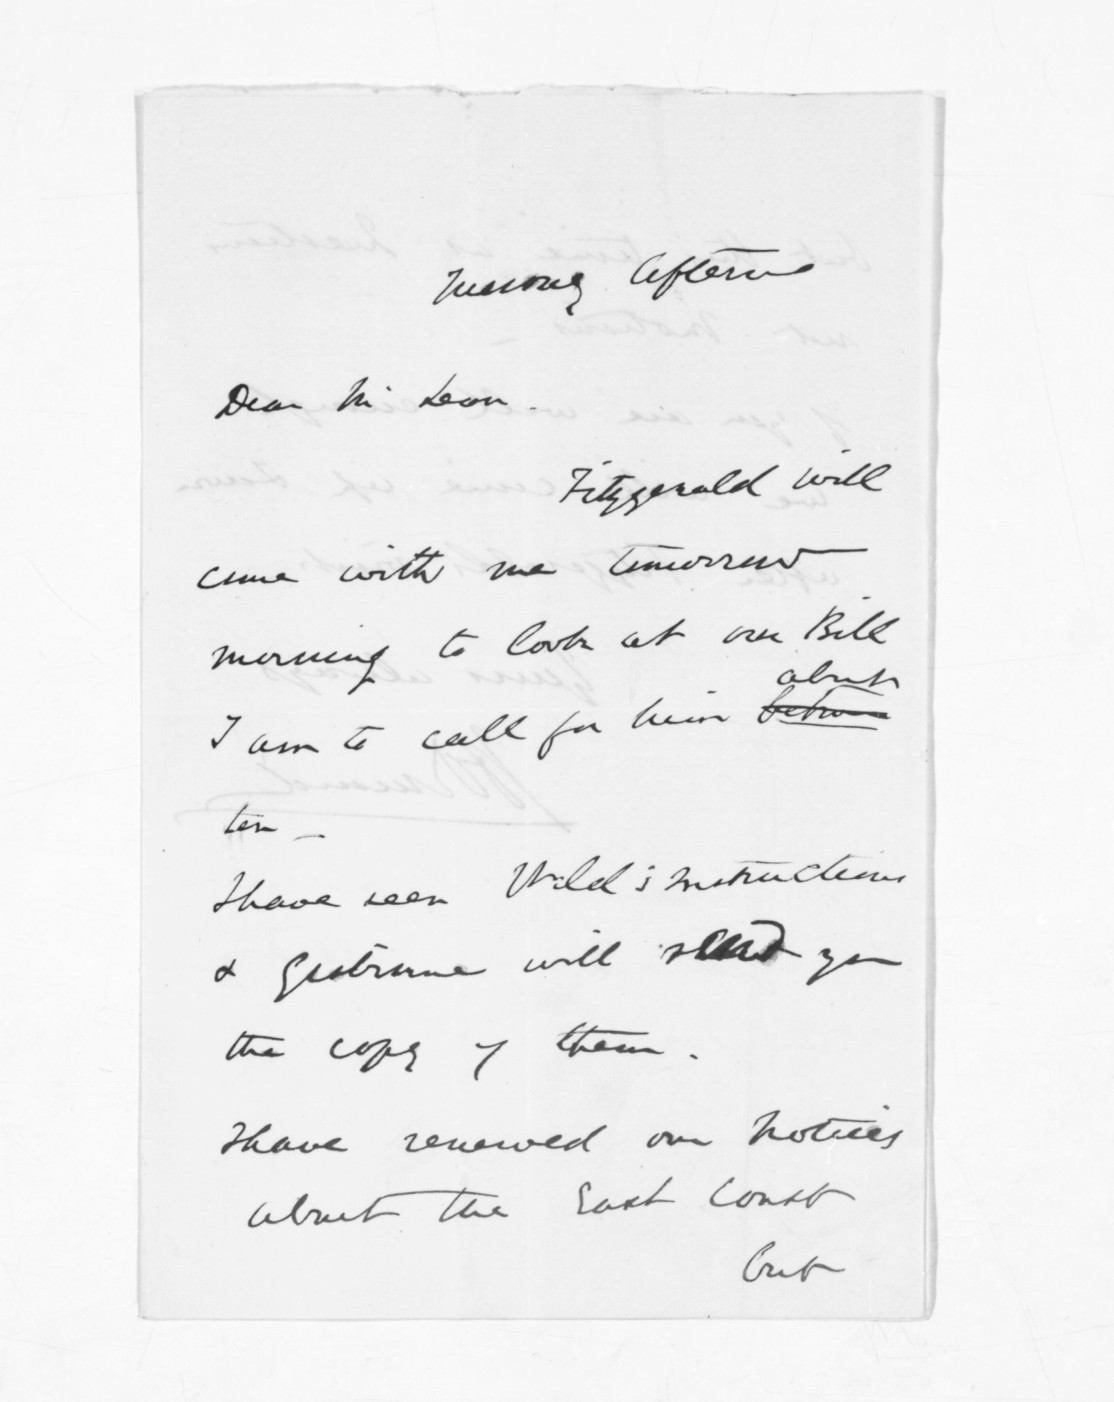 Tuesday Afternn
Dear McLean.
Fitzgerald will
come with me tomorrow
morning to look at our Bill
about
I am to call for him between
ten _
I have seen Weld's instructions
& Gisborne will send you
the copy of them.
I have renewed our Notices
about the East Coast
but